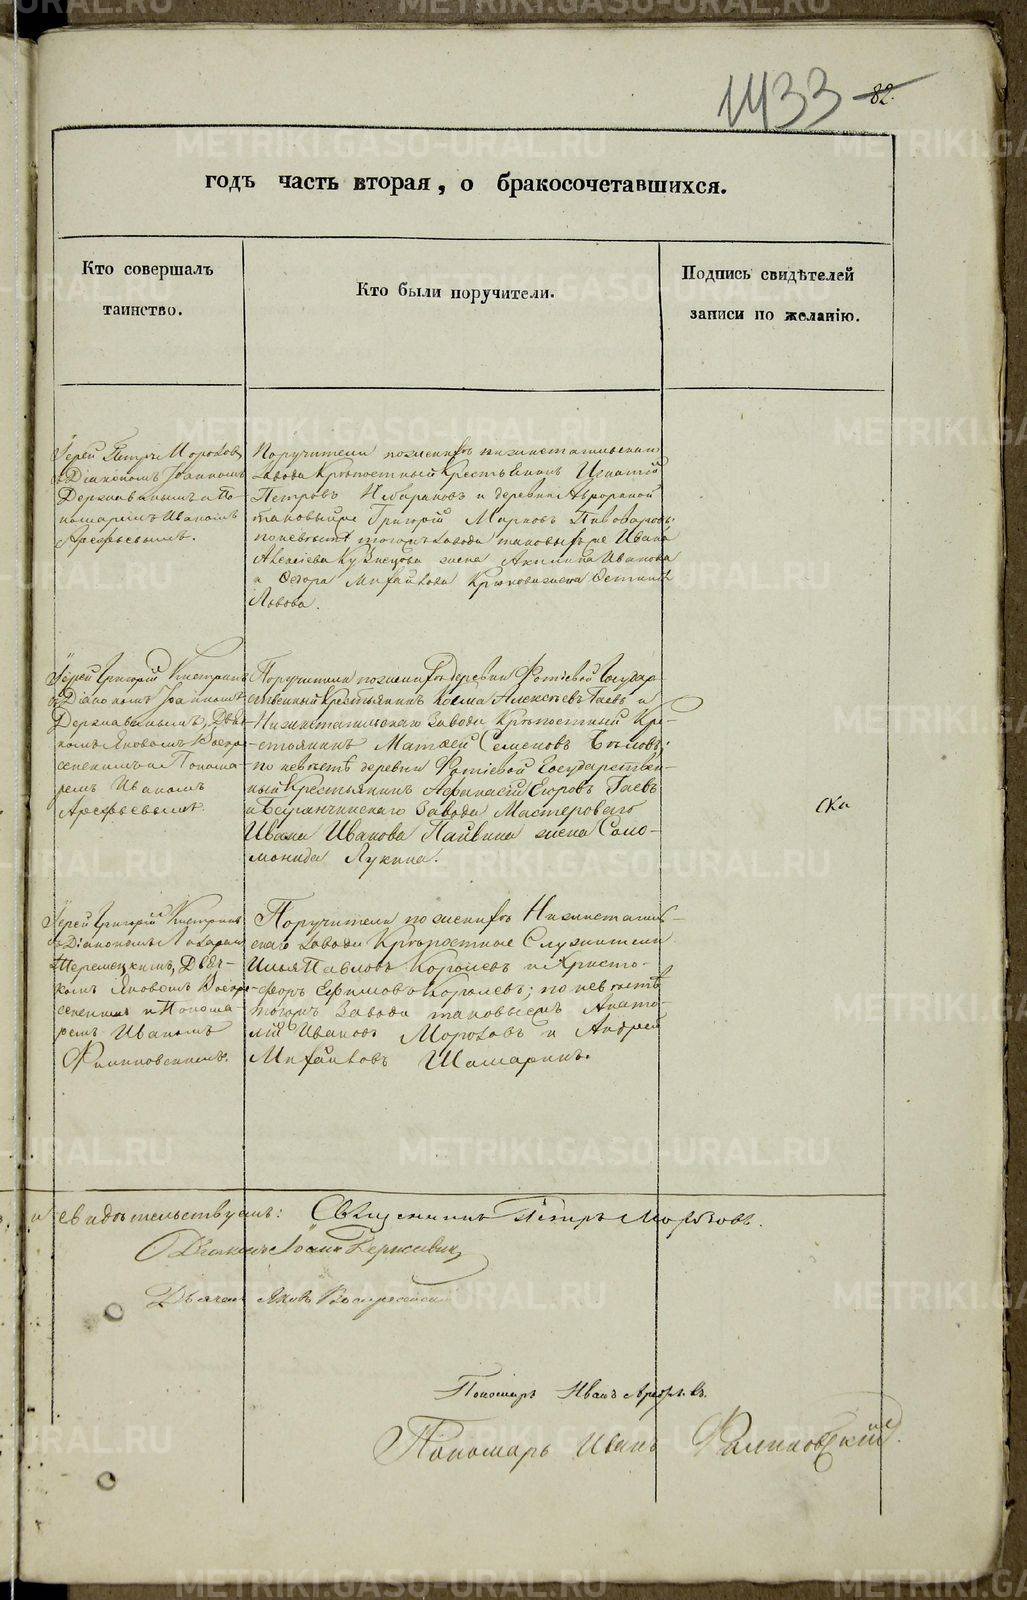 1433
82.
годъ часть вторая, о бракосочетавшихся.
Кто совершалъ
таинство.
Кто были поручители.
Подпись свидѣтелей
записи по желанію.
Іерей Петръ Морозовъ
съ Діакономъ Іоанномъ
Державинымъ и По-
номаремъ Иваномъ
Арефьевымъ.
Поручители по женихѣ Нижнетагильскаго
завода Крѣпостный Крестьянинъ Игнатій
Петровъ и деревни
таковый же Григорій Марковъ Пивоваровъ;
по невѣстѣ тогожъ завода таковыхъ же Ивана
Алексѣева Кузнецова жена Акилина Иванова
и Ѳедора Михайлова Крюкова жена Устинія
Львова.
Іерей Григорій
съ Діакономъ Іоанномъ
Державинымъ, Дьяч-
комъ Яковомъ Воскре-
сенскимъ и Понома-
ремъ Иваномъ
Арефьевымъ.
Поручители по женихѣ деревни Фотіевой Государ-
ственный Крестьянинъ Косма Алексѣевъ Гаевъ и
Нижнетагильскаго завода Крѣпостный Кре-
стьянинъ Матвей Семеновъ
по невѣстѣ деревни Фотіевой Государствен-
ный Крестьянинъ Афанасій Егоровъ Гаевъ
и Баранчинскаго Завода Мастероваго
Ивана Иванова Пайвина жена Соло-
монида Лукина.
ска
Іерей Григорій
съ Діакономъ Лазаремъ
Шеремецкимъ, Дьяч-
комъ Яковомъ Воскре-
сенскимъ и Понома-
ремъ Иваномъ
Фалиновскимъ.
Поручители по женихѣ Нижнетагиль-
скаго завода Крѣпостные Служители
Илья Павловъ Королевъ и Христо-
форъ Ефимовъ Королевъ; по невѣстѣ
тогожъ Завода таковыежъ Анато-
лій Ивановъ Морозовъ и Андрей
Михайловъ Шамаринъ.
свидѣтельствуемъ: Священникъ Петръ Морозовъ.
Діаконъ Іоаннъ Державинъ
Дьячекъ Яковъ Воскресенскій
Пономарь Иванъ Арефьевъ.
Пономарь Иванъ Фалиновскій.
METRIKI.GASO-URAL.RU